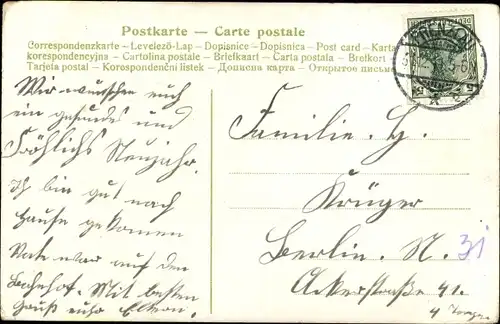 Postkarte — Carte postale
Correspondenzkarte – Levelező-Lap – Dopisnice – Dopisnica – Post card – Karta
korespondencyjna – Cartolina postale – Briefkaart – Carta postala – Brefkort
Tarjeta postal – Korespondenční listek – Дописна карта – Открытое письмо
Wir wünschen euch
ein gesundes und
Fröhlichs Neujahr.
Ich bin gut nach
Hause gekomen
Vate war auf den
Bahnhof. Mit besten
Gruß euhr Eltern.
Familie H.
Krüger
Berlin. N. 31
Ackerstraße 41.